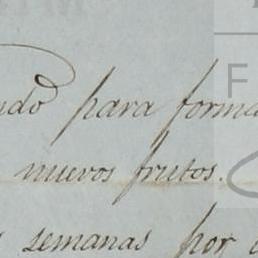 ndo para forma
nuevos frutos.
s semanas por